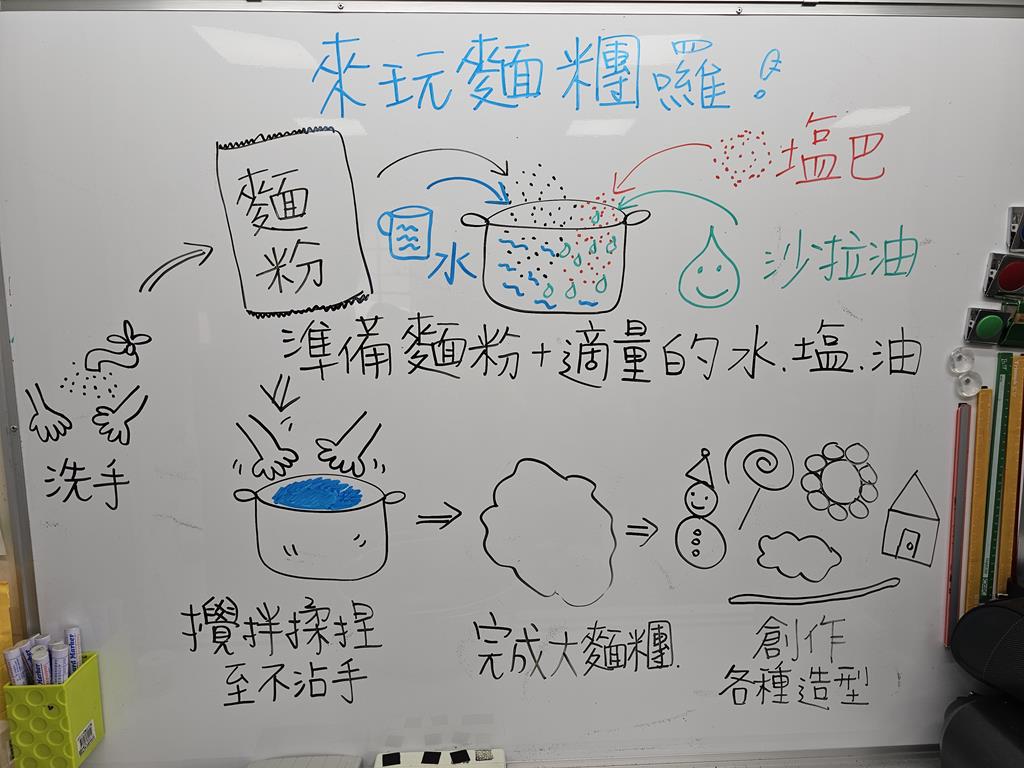 來玩麵糰囉!
麵
粉
塩巴
水
沙拉油
準備麵粉+適量的水.塩.油
洗手
攪拌揉捏
至不沾手
完成大麵糰.
創作
各種造型